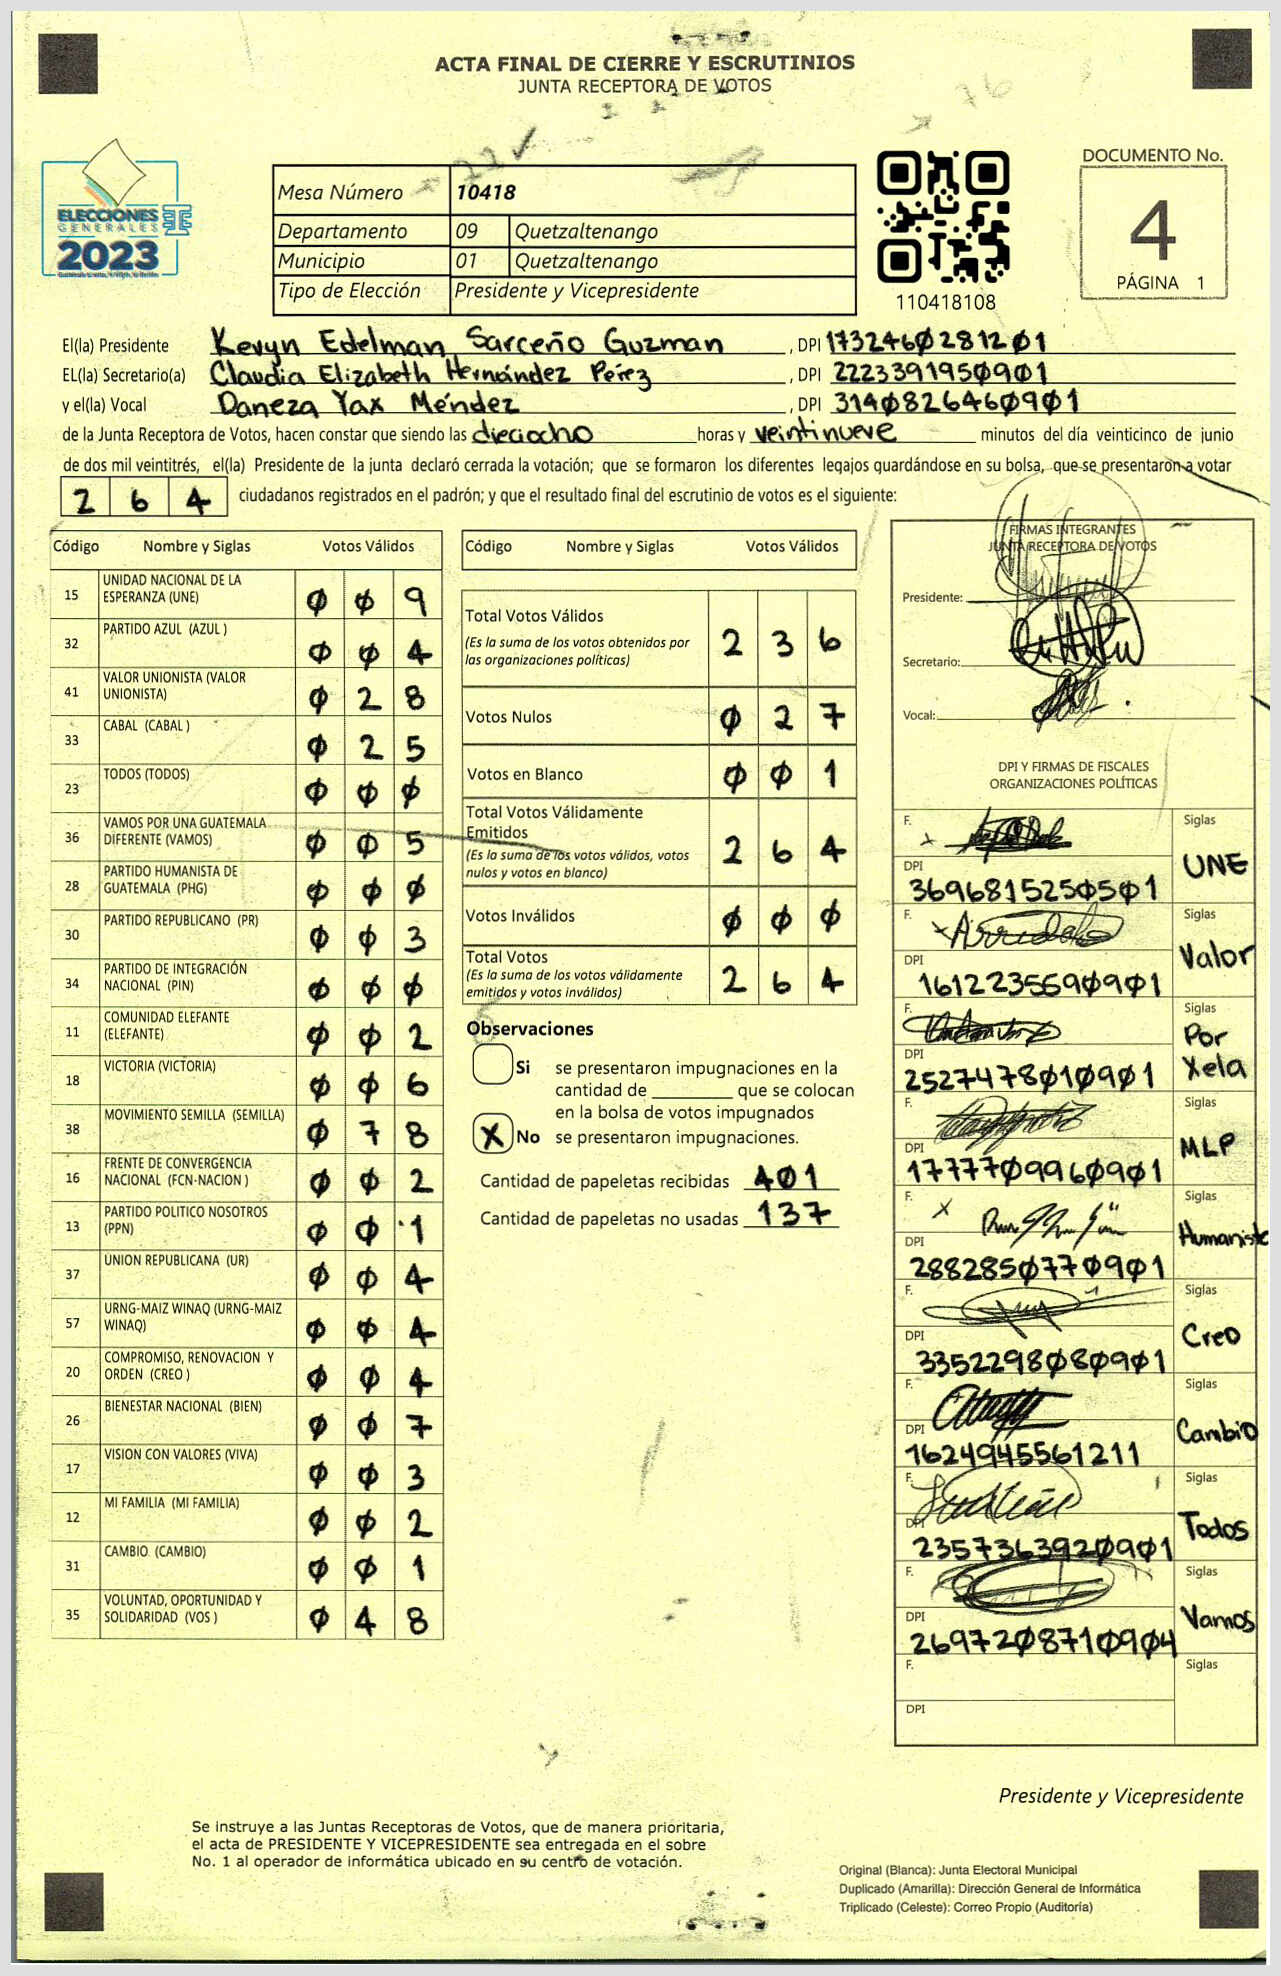 ACTA FINAL DE CIERRE Y ESCRUTINIOS
JUNTA RECEPTORA DE VOTOS
22 ✓
76
ELECCIONES
GENERALES
2023
Mesa Número 10418
Departamento 09 Quetzaltenango
Municipio 01 Quetzaltenango
Tipo de Elección Presidente y Vicepresidente
110418108
DOCUMENTO No.
4
PÁGINA 1
El(la) Presidente Kevyn Edelman Sarceño Guzman, DPI 1732460281201
EL(la) Secretario(a) Claudia Elizabeth Hernández Pérez, DPI 2223391950901
y el(la) Vocal Daneza Yax Méndez, DPI 3140826460901
de la Junta Receptora de Votos, hacen constar que siendo las dieciocho horas y veintinueve minutos del día veinticinco de junio
de dos mil veintitrés, el(la) Presidente de la junta declaró cerrada la votación; que se formaron los diferentes legajos guardándose en su bolsa, que se presentaron a votar
2 6 4 ciudadanos registrados en el padrón; y que el resultado final del escrutinio de votos es el siguiente:
Código Nombre y Siglas Votos Válidos
15 UNIDAD NACIONAL DE LA ESPERANZA (UNE) 0 0 9
32 PARTIDO AZUL (AZUL ) 0 0 4
41 VALOR UNIONISTA (VALOR UNIONISTA) 0 2 8
33 CABAL (CABAL ) 0 2 5
23 TODOS (TODOS) 0 0 0
36 VAMOS POR UNA GUATEMALA DIFERENTE (VAMOS) 0 0 5
28 PARTIDO HUMANISTA DE GUATEMALA (PHG) 0 0 0
30 PARTIDO REPUBLICANO (PR) 0 0 3
34 PARTIDO DE INTEGRACIÓN NACIONAL (PIN) 0 0 0
11 COMUNIDAD ELEFANTE (ELEFANTE) 0 0 2
18 VICTORIA (VICTORIA) 0 0 6
38 MOVIMIENTO SEMILLA (SEMILLA) 0 7 8
16 FRENTE DE CONVERGENCIA NACIONAL (FCN-NACION ) 0 0 2
13 PARTIDO POLITICO NOSOTROS (PPN) 0 0 1
37 UNION REPUBLICANA (UR) 0 0 4
57 URNG-MAIZ WINAQ (URNG-MAIZ WINAQ) 0 0 4
20 COMPROMISO, RENOVACION Y ORDEN (CREO ) 0 0 4
26 BIENESTAR NACIONAL (BIEN) 0 0 7
17 VISION CON VALORES (VIVA) 0 0 3
12 MI FAMILIA (MI FAMILIA) 0 0 2
31 CAMBIO (CAMBIO) 0 0 1
35 VOLUNTAD, OPORTUNIDAD Y SOLIDARIDAD (VOS ) 0 4 8
Código Nombre y Siglas Votos Válidos
Total Votos Válidos 2 3 6
(Es la suma de los votos obtenidos por
las organizaciones políticas)
Votos Nulos 0 2 7
Votos en Blanco 0 0 1
Total Votos Válidamente
Emitidos 2 6 4
(Es la suma de los votos válidos, votos
nulos y votos en blanco)
Votos Inválidos 0 0 0
Total Votos 2 6 4
(Es la suma de los votos válidamente
emitidos y votos inválidos)
Observaciones
Si se presentaron impugnaciones en la
cantidad de ________ que se colocan
en la bolsa de votos impugnados
X No se presentaron impugnaciones.
Cantidad de papeletas recibidas 401
Cantidad de papeletas no usadas 137
FIRMAS INTEGRANTES
JUNTA RECEPTORA DE VOTOS
Presidente:
Secretario:
Vocal:
DPI Y FIRMAS DE FISCALES
ORGANIZACIONES POLÍTICAS
F. Siglas
DPI 3696815250501 UNE
F. Siglas
DPI 1612235590901 Valor
F. Siglas
DPI 2527478010901 Por Xela
F. Siglas
DPI 1777709960901 MLP
F. Siglas
DPI 2882850770901 Humanista
F. Siglas
DPI 3352298080901 Creo
F. Siglas
DPI 1624945561211 Cambio
F. Siglas
DPI 2357363920901 Todos
F. Siglas
DPI 2697208710904 Vamos
F. Siglas
DPI
Presidente y Vicepresidente
Se instruye a las Juntas Receptoras de Votos, que de manera prioritaria,
el acta de PRESIDENTE Y VICEPRESIDENTE sea entregada en el sobre
No. 1 al operador de informática ubicado en su centro de votación.
Original (Blanca): Junta Electoral Municipal
Duplicado (Amarilla): Dirección General de Informática
Triplicado (Celeste): Correo Propio (Auditoría)